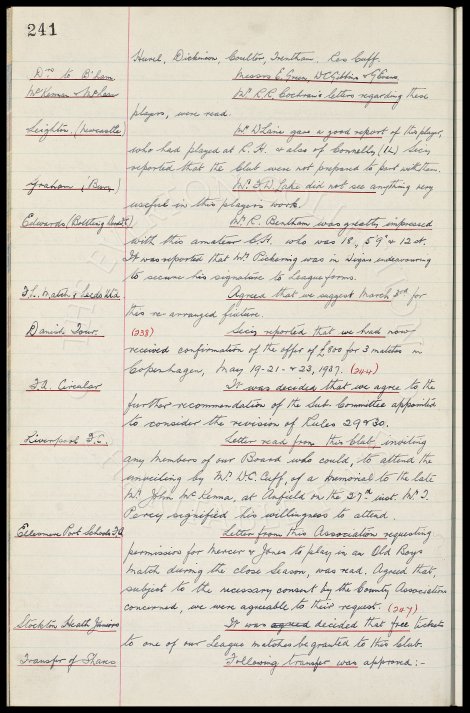 241
Hurel, Dickinson, Coulter, Trentham. Res Cuff.
Drs to B'ham.
Messrs E. Green, W.C. Gibbins & G. Evans.
McKenna & McLean
Mr. R.R. Cochran's letters regarding these
players, were read.
Leighton. (Newcastle)
Mr W. Line gave a good report of this player,
who had played at R.H. & also of Connelly (12) Secy
reported that the Club were not prepared to part with them.
Graham (Bury)
Mr. F.D. Lake did not see anything very
useful in this players work.
Edwards (Bootting Bank R.)
Mr. R. Bentham was greatly impressed
with this amateur C.H. who was 18., 5'9" & 12 st.
It was reported that Mr Pickering was in Wigan endeavouring
to secure his signature to League forms.
F.L. Match v Leeds Utd.
Agreed that we suggest March 3rd for
this re-arranged fixture.
Danish Tour.
(238)
Secy reported that we had now
received confirmation of the offer of £800 for 3 matches in
Copenhagen, May 19-21 & 23, 1937. (244)
F.A. Circular
It was decided that we agree to the
further recommendation of the Sub. Committee appointed
to consider the revision of Rules 29 & 30.
Liverpool F.C.
Letter read from this Club, inviting
any members of our Board who could, to attend the
unveiling by Mr. W.C. Cuff, of a memorial to the late
Mr John McKenna, at Anfield on the 27th inst. Mr. T.
Percy signified his willingness to attend.
Ellesmere Port Schools F.A.
Letter from this Association requesting
permission for Mercer & Jones to play in an Old Boys
match during the close Season, was read. Agreed that,
subject to the necessary consent by the County Associations
concerned, we were agreeable to their request. (247)
Stockton Heath Juniors
It was agreed decided that free tickets
to one of our League matches be granted to this Club.
Transfer of Shares
Following transfer was approved:-